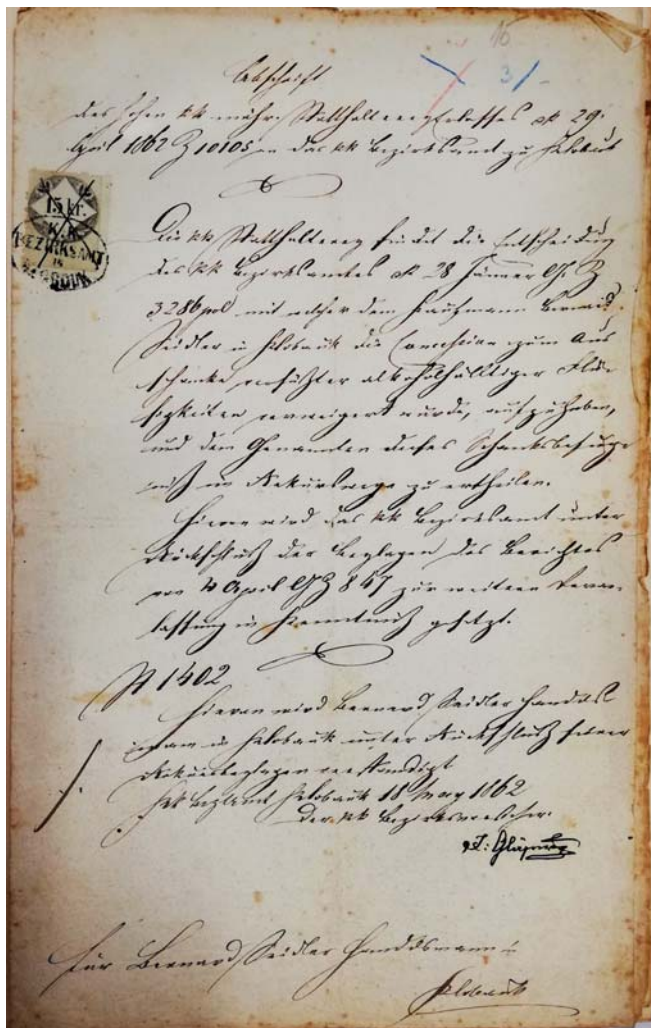 16
3/-
Abschrift
des hohen kk mähr. Statthalterey Erlasses dt 29.
April 1862 Z 10105 an das kk Bezirksamt zu Klobauk
15 kr.
K. K.
BEZIRKSAMT
IN
KLOBOUK
Die kk Statthalterey findet die Entscheidung
des kk Bezirksamtes dt 28 Jänner lJ. Z
3286 pol mit welcher dem Kaufmann Bernard
Seidler in Klobauk die Concession zum Aus
schanke versüßter alkoholhälltiger Flüs
sigkeiten verweigert wurde, aufzuheben,
und dem Genannten dieses Schanksbefug
niß im Rekurswege zu ertheilen.
Hievon wird das kk Bezirksamt unter
Rückschluß der Beylagen des Berichtes
vom 4 April lJ Z 847 zur weitern Veran
lassung in Kenntniß gesetzt.
N 1402
Hievon wird Bernard Seidler Handels
mann in Klobauk unter Rückschluß seiner
Rekursbeylagen verständigt
Klobauk 18 May 1862
Der kk Bezirksvorsteher.
Für Bernard Seidler Handelsmann in
Klobauk